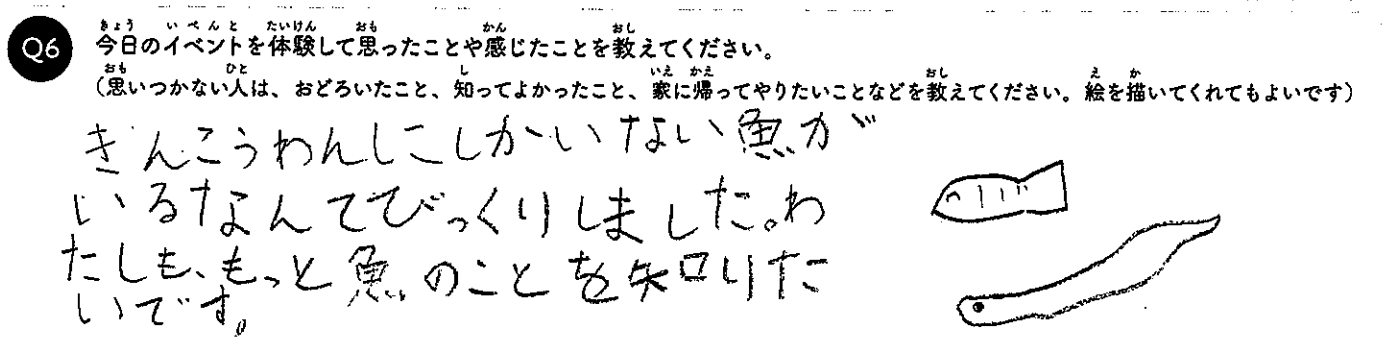 Q6
きょう いべんと たいけん おも かん おし
今日のイベントを体験して思ったことや感じたことを教えてください。
おも ひと し いえ かえ おし え か
（思いつかない人は、おどろいたこと、知ってよかったこと、家に帰ってやりたいことなどを教えてください。絵を描いてくれてもよいです）
きんこうわんしこしかいない魚が
いるなんてびっくりしました。わ
たしも、もっと魚のことを知りた
いです。